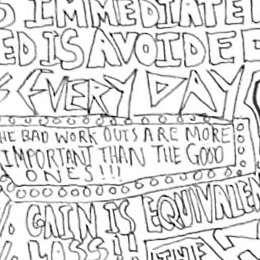 IMMEDIATE
ED IS AVOIDED
EVERY DAY
HE BAD WORK OUTS ARE MORE
IMPORTANT THAN THE GOOD
ONES!!!
% GAIN IS EQUIVALEN
% LOSS!! THE